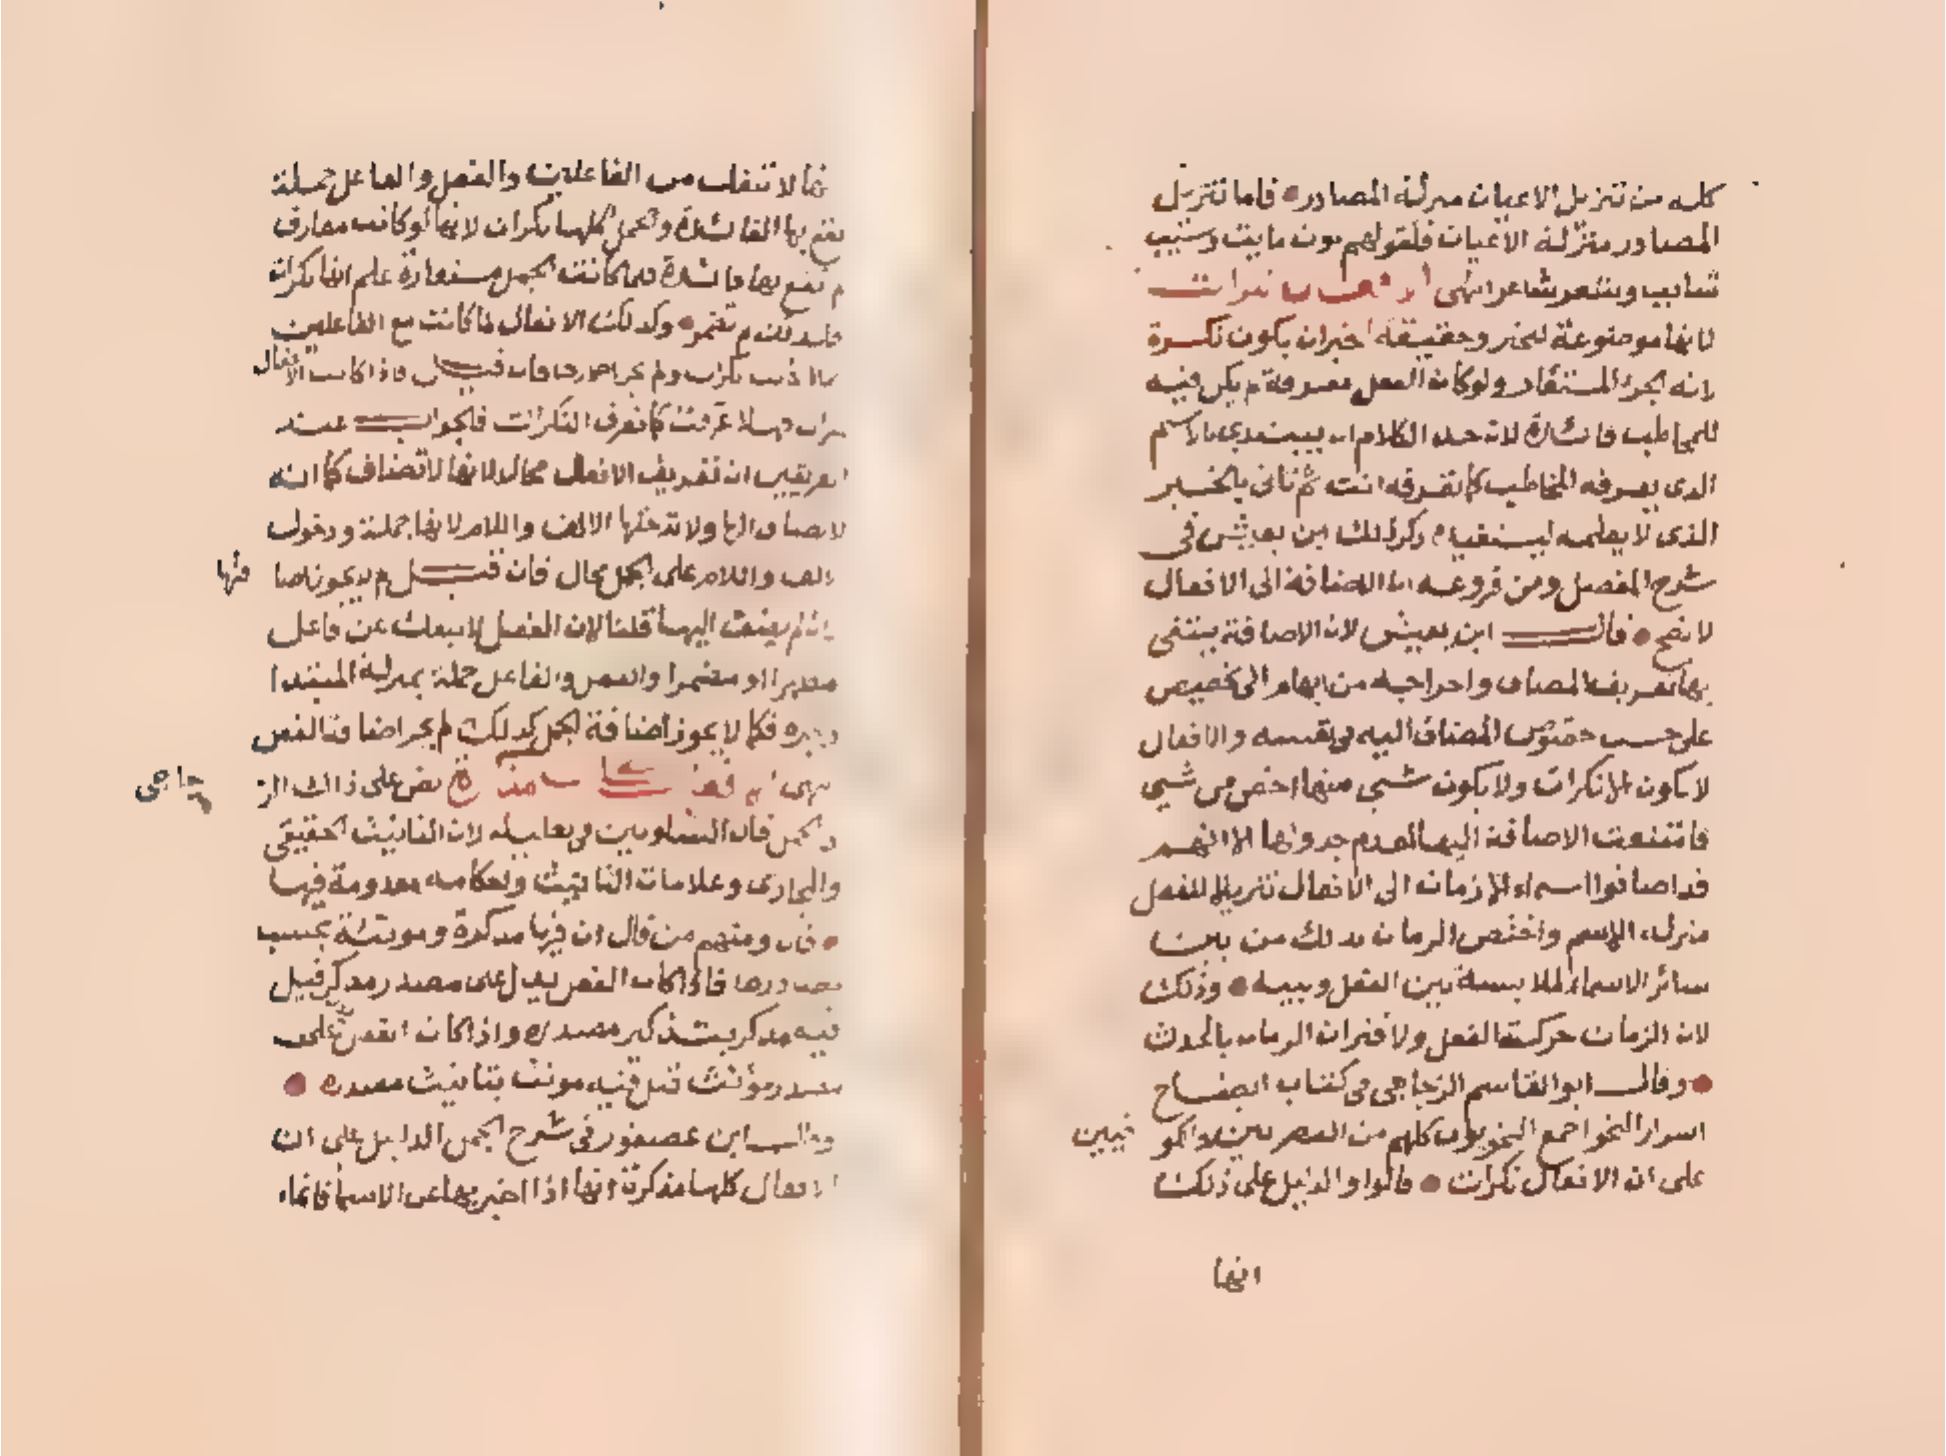 كله من تنزيل الاعيان منزلة المصادر فاما تنزيل
المصادر منزلة الاعيان فلقولهم موت مايت وشيب
شايب وشعر شاعر انتهى الافعال نكرات
لانها موضوعة للخبر وحقيقة الخبر ان يكون نكرة
لانه الجزء المستفاد ولو كان الفعل معرفة لم يكن فيه
للمخاطب فائدة لان حد الكلام ان يبتدى بالاسم
الذى يعرفه المخاطب كما تعرفه انت ثم تاتى بالخبر
الذى لا يعلمه ليستفيده ذكر ذلك ابن يعيش فى
شرح المفصل ومن فروعه ان الاضافة الى الافعال
لا تصح قال ابن يعيش لان الاضافة ينبغى
بها تعريف المضاف واخراجه من ابهام الى تخصيص
على حسب خصوص المضاف اليه فى نفسه والافعال
لا تكون الا نكرات ولا يكون شىء منها اخص من شىء
فامتنعت الاضافة اليها لعدم جدواها الا انهم
قد اضافوا اسماء الازمان الى الافعال تنزيلا للفعل
منزلة الاسم واختص الزمان بذلك من بين
سائر الاسماء للملابسة بين الفعل وبينه وذلك
لان الزمان حركة الفعل ولاقتران الزمان بالحدث
وقال ابو القاسم الزجاجى فى كتاب ايضاح
اسرار النحو اجمع النحويون كلهم من البصريين والكو
فيين
على ان الافعال نكرات قالوا والدليل على ذلك
انها
انها لا تنفك من الفاعلين والفعل والفاعل جملة
تقع بها الفائدة والجمل كلها نكرات لانها لو كانت معارف
لم تقع بها فائدة فلما كانت الجمل مستفادة علم انها نكرات
فلذلك لم تضمر وكذلك الافعال لما كانت مع الفاعلين
جملا كانت نكرات ولم يجز اضمارها فان قيل فاذا كانت الافعال
نكرات فهلا عرفت كما تعرف النكرات فالجواب عند
الفريقين ان تعريف الافعال محال لانها لا تضاف كما انه
لا يضاف اليها ولا تدخلها الالف واللام لانها جملة ودخول
الالف واللام على الجمل محال فان قيل لم لا يجوز اضا
فتها
وان لم يضف اليها قلنا لان الفعل لا ينفك عن فاعل
مظهرا او مضمرا والفعل والفاعل جملة بمنزلة المبتدا
وخبره فكما لا يجوز اضافة الجمل كذلك لم يجز اضافة الفعل
انتهى نص على ذلك الز
جاجى
فى الجمل قال الشلوبين فى تعليله لان التانيث الحقيقى
والمجازى وعلامات التانيث واحكامه معدومة فيها
قال ومنهم من قال ان فيها مذكرة ومونثة بحسب
مصادرها فاذا كان الفعل يدل على مصدر مذكر قيل
فيه مذكر بتذكير مصدره واذا كان الفعل يدل على
مصدر مؤنث قيل فيه مونث بتانيث مصدره
وقال ابن عصفور فى شرح الجمل الدليل على ان
الافعال كلها مذكرة انها اذا اخبر بها عن الاسماء فانما